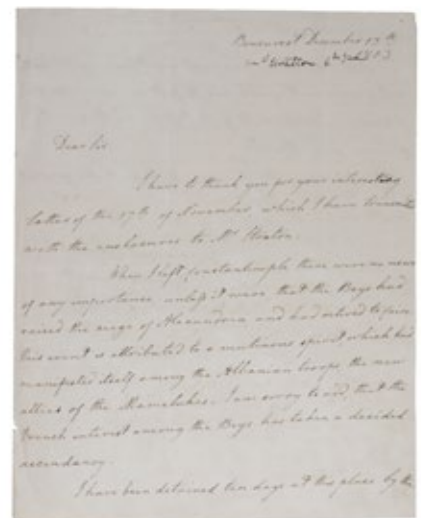 Bucarest December 13th
Dear Sir
I have to thank you for your interesting
letter of the 17th of November which I have
with the enclosures to Mr Straton.
When I left Constantinople there were no news
of any importance unless it were that the Beys had
raised the siege of Alexandria and had retired to
this event is attributed to a mutinous spirit which had
manifested itself among the Albanian troops, the new
allies of the Mamalukes. I am sorry to add, that the
French interest among the Beys has taken a decided
ascendancy.
I have been detained ten days at this place by the